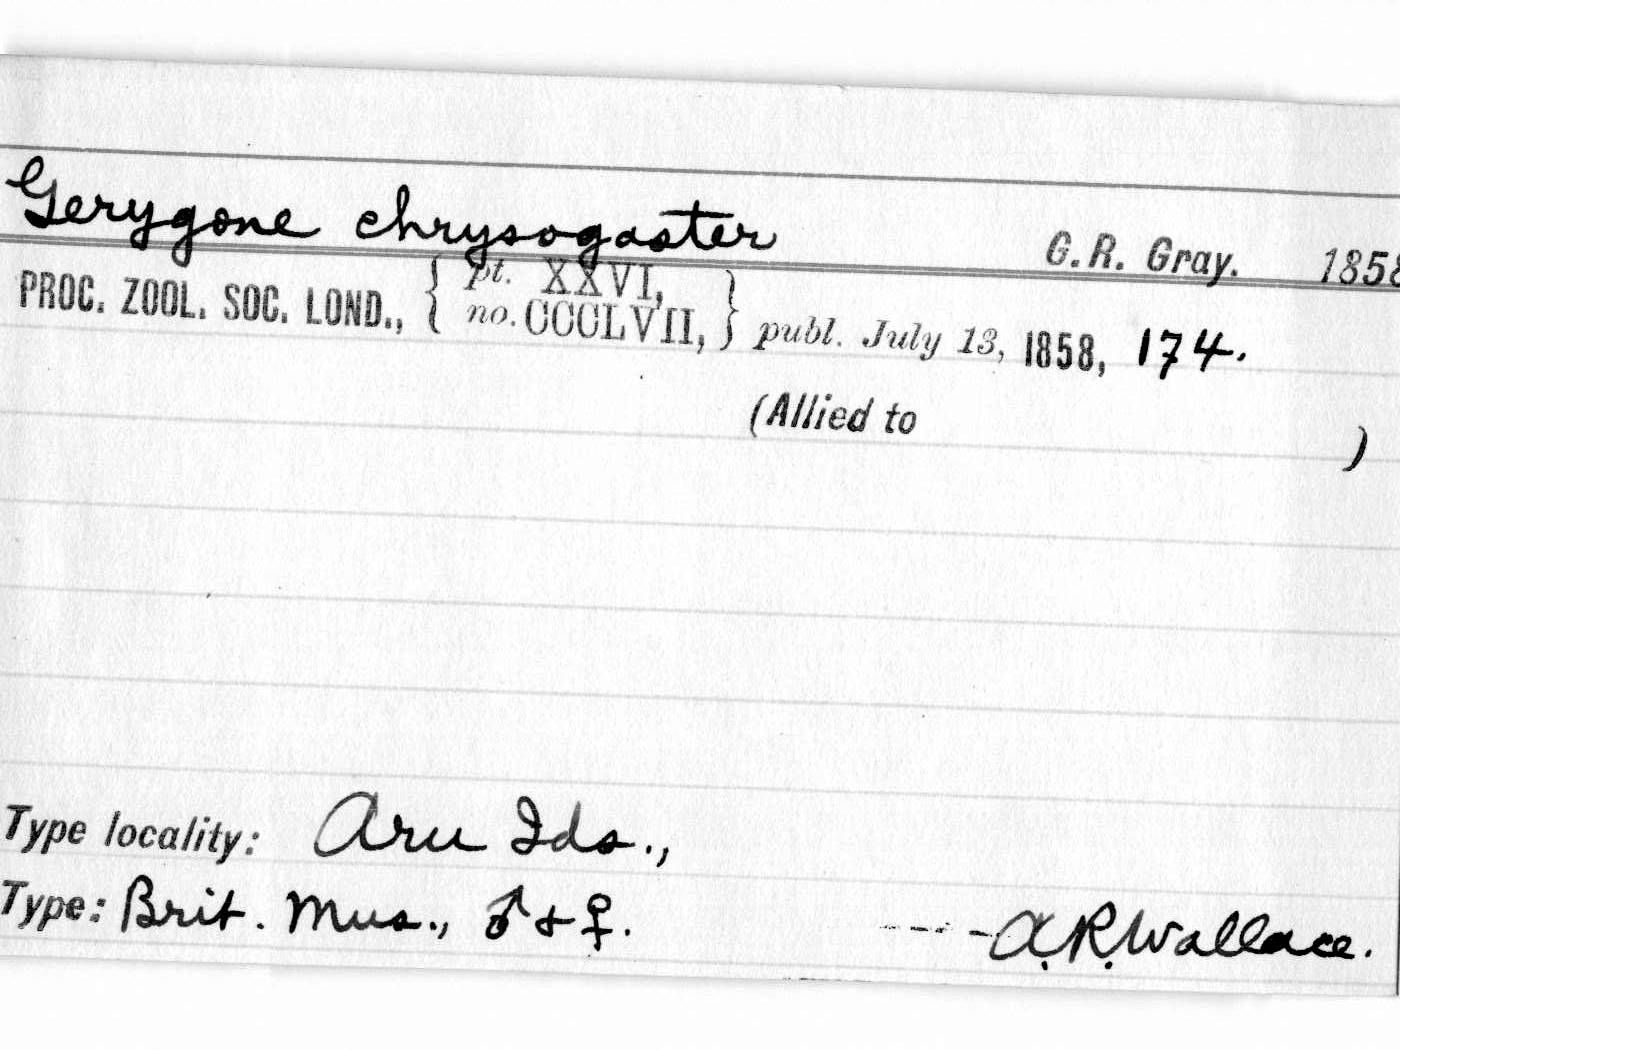 Gerygone chrysogaster G.R. Gray. 1858
PROC. ZOOL. SOC. LOND., { pt. XXVI, no. CCCLVII, } publ. July 13, 1858, 174.
(Allied to )
Type locality: Aru Ids.,
Type: Brit. Mus., ♂ & ♀. ---- A.R. Wallace.